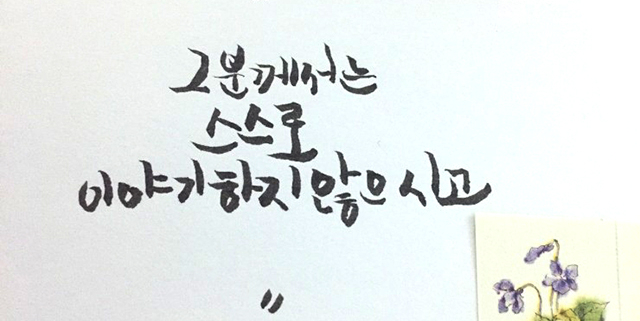 그분께서는
스스로
이야기하지 않으시고
〃